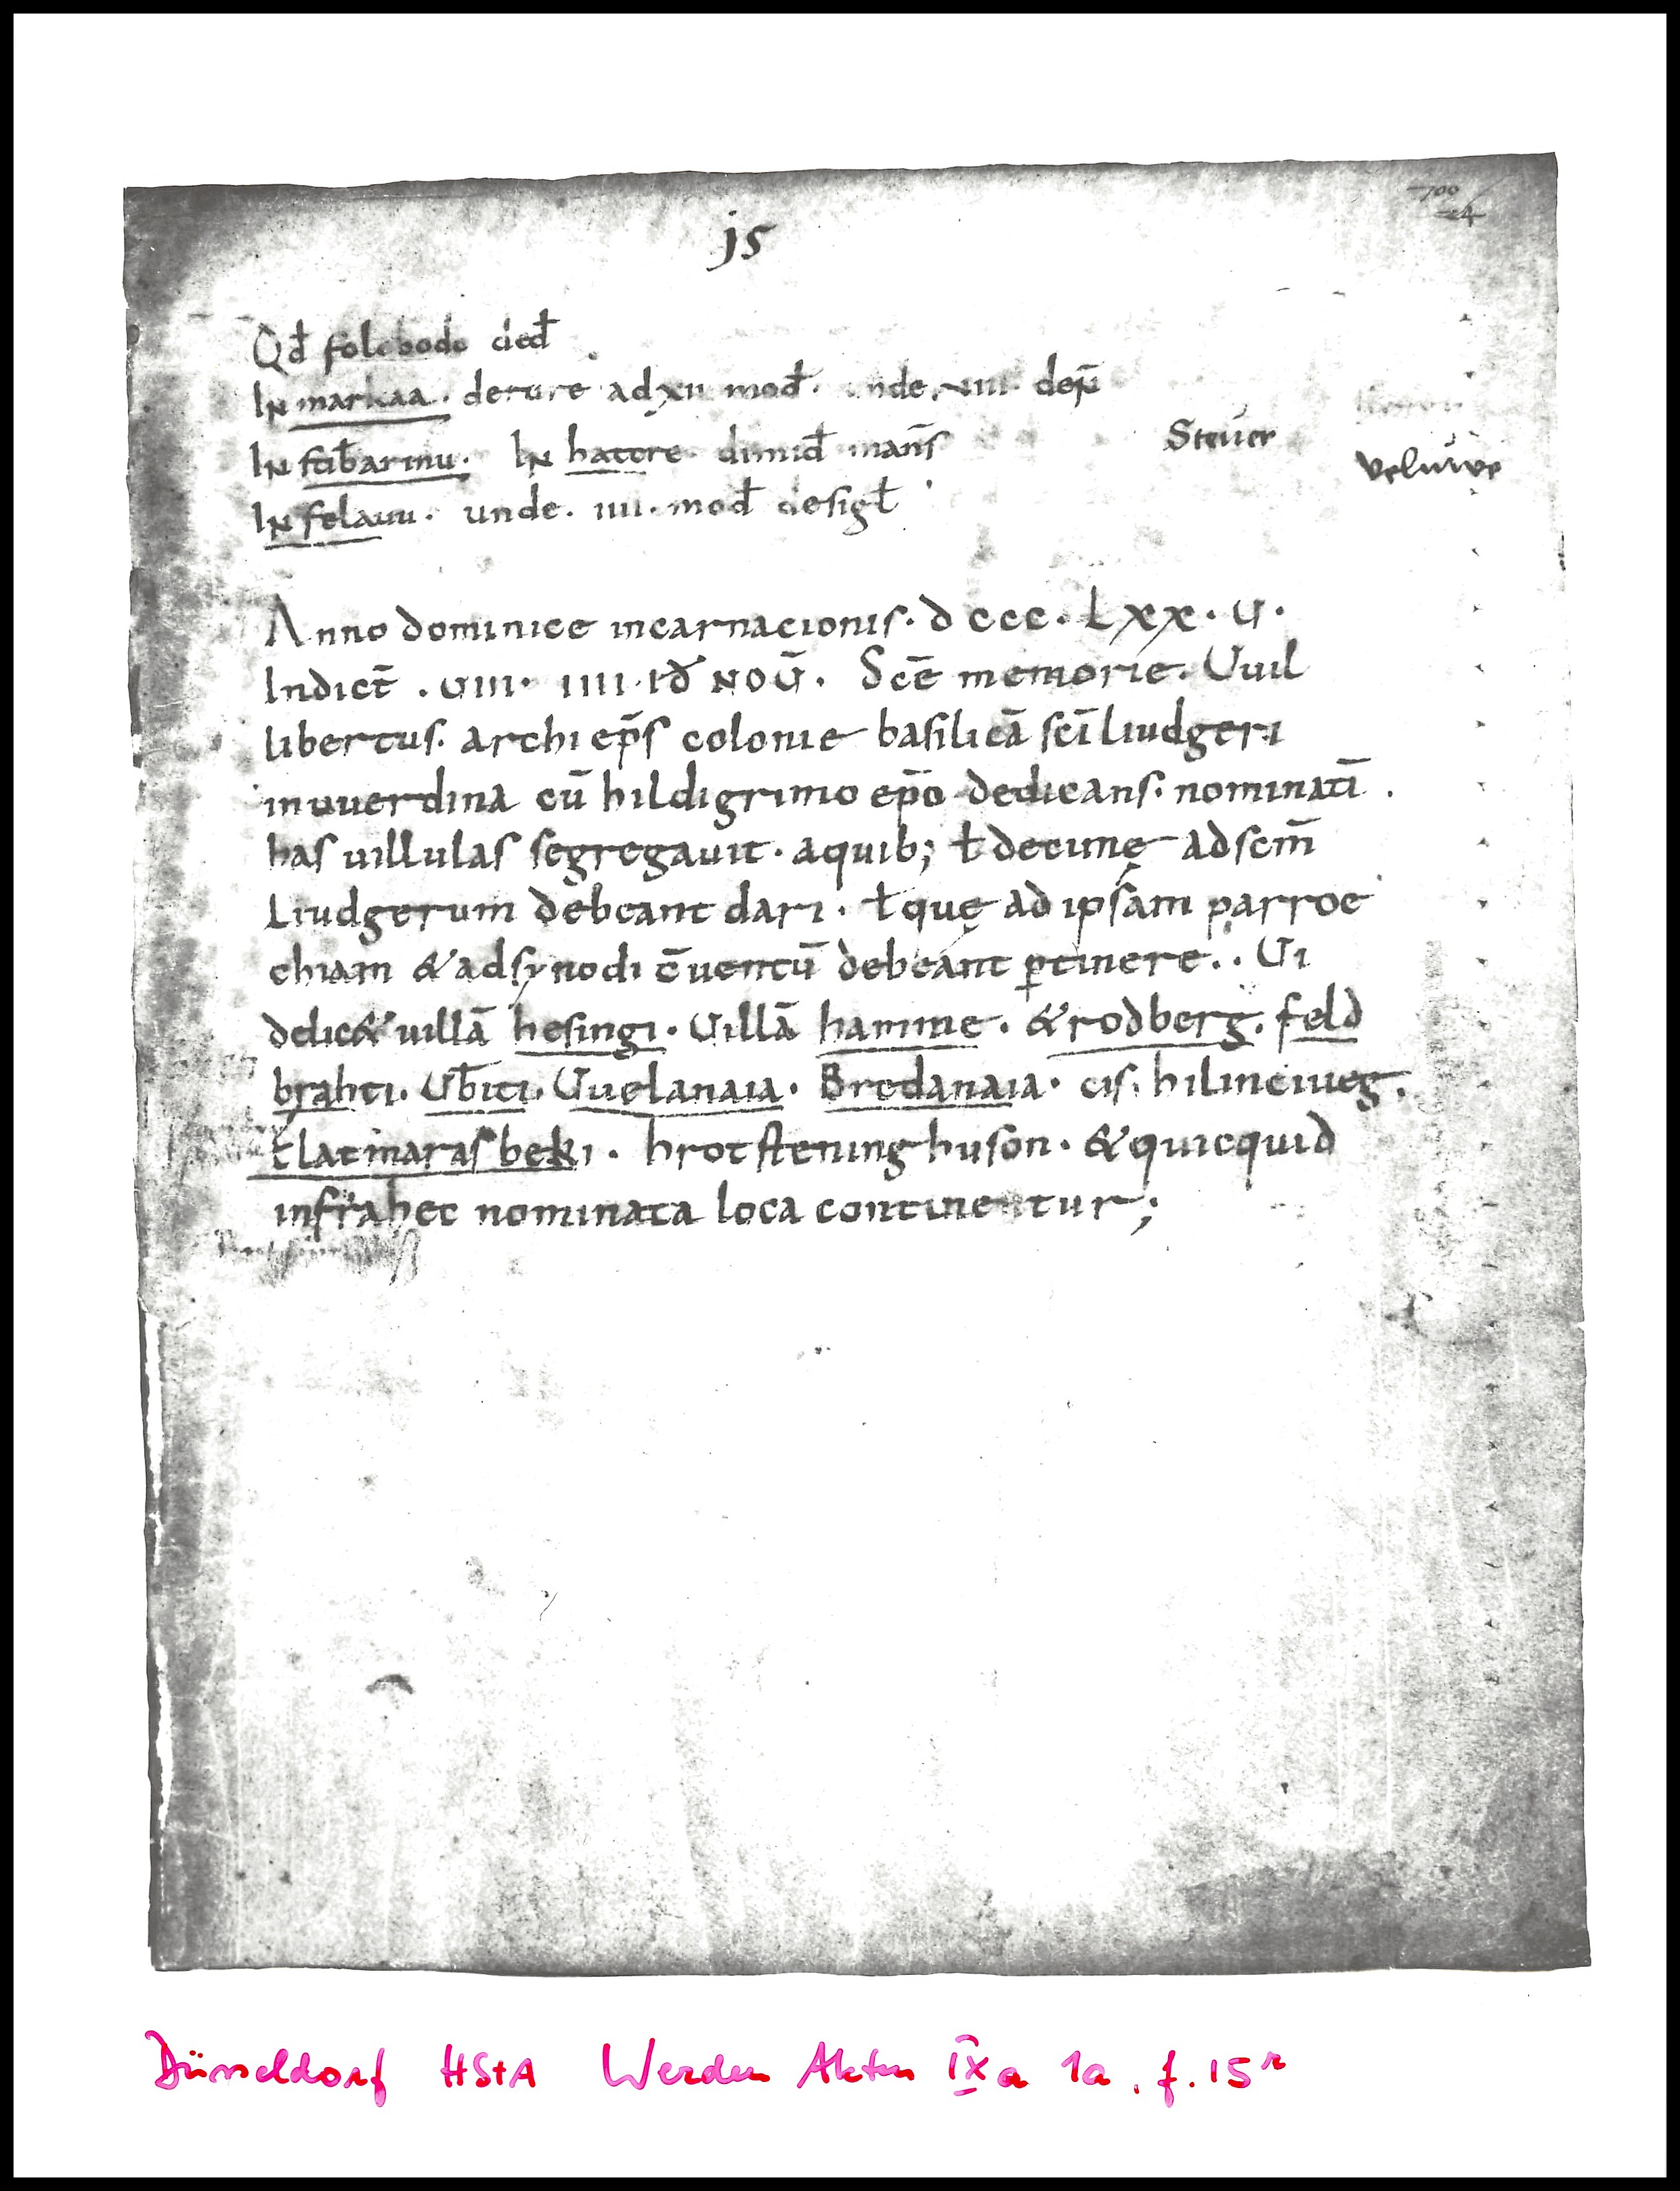 js
Qd̄ folcbodo ded̄
IN markaa. de ture ad xii mod̄. unde. viiii. deн̄
IN fab̄arinu. IN hattre dimid̄ man̄s Steuer
veluwe
IN felauu. unde. iiii. mod̄ desigł
Anno dominice incarnacionis. d ccc. Lxx. u.
Indict̄. uiii. iiii. id̄ noū. Scē memorie. Uuil
libertus. archi ep̄s colonie basilicā scī liudgeri
in uuerdina cū hildigrimo ep̄o dedicans. nominatī.
has uillulas segregauit. a quib; ł decimę ad scm̄
Liudgerum debeant dari. ł quę ad ipsam parroc
chiam & ad synodi c̄uentū debeant ꝑtinere. Ui
delic& uillā hesingi. Uillā hamme. & rodberg. feld
brahti. Ub̄iti. Uuelanaia. Bredanaia. cis. hilinciueg.
ł latmaras beki. hrotsteninghuson. & quicquid
infra hec nominata loca continentur;
Düsseldorf HStA Werden Akten IX a 1a, f. 15r